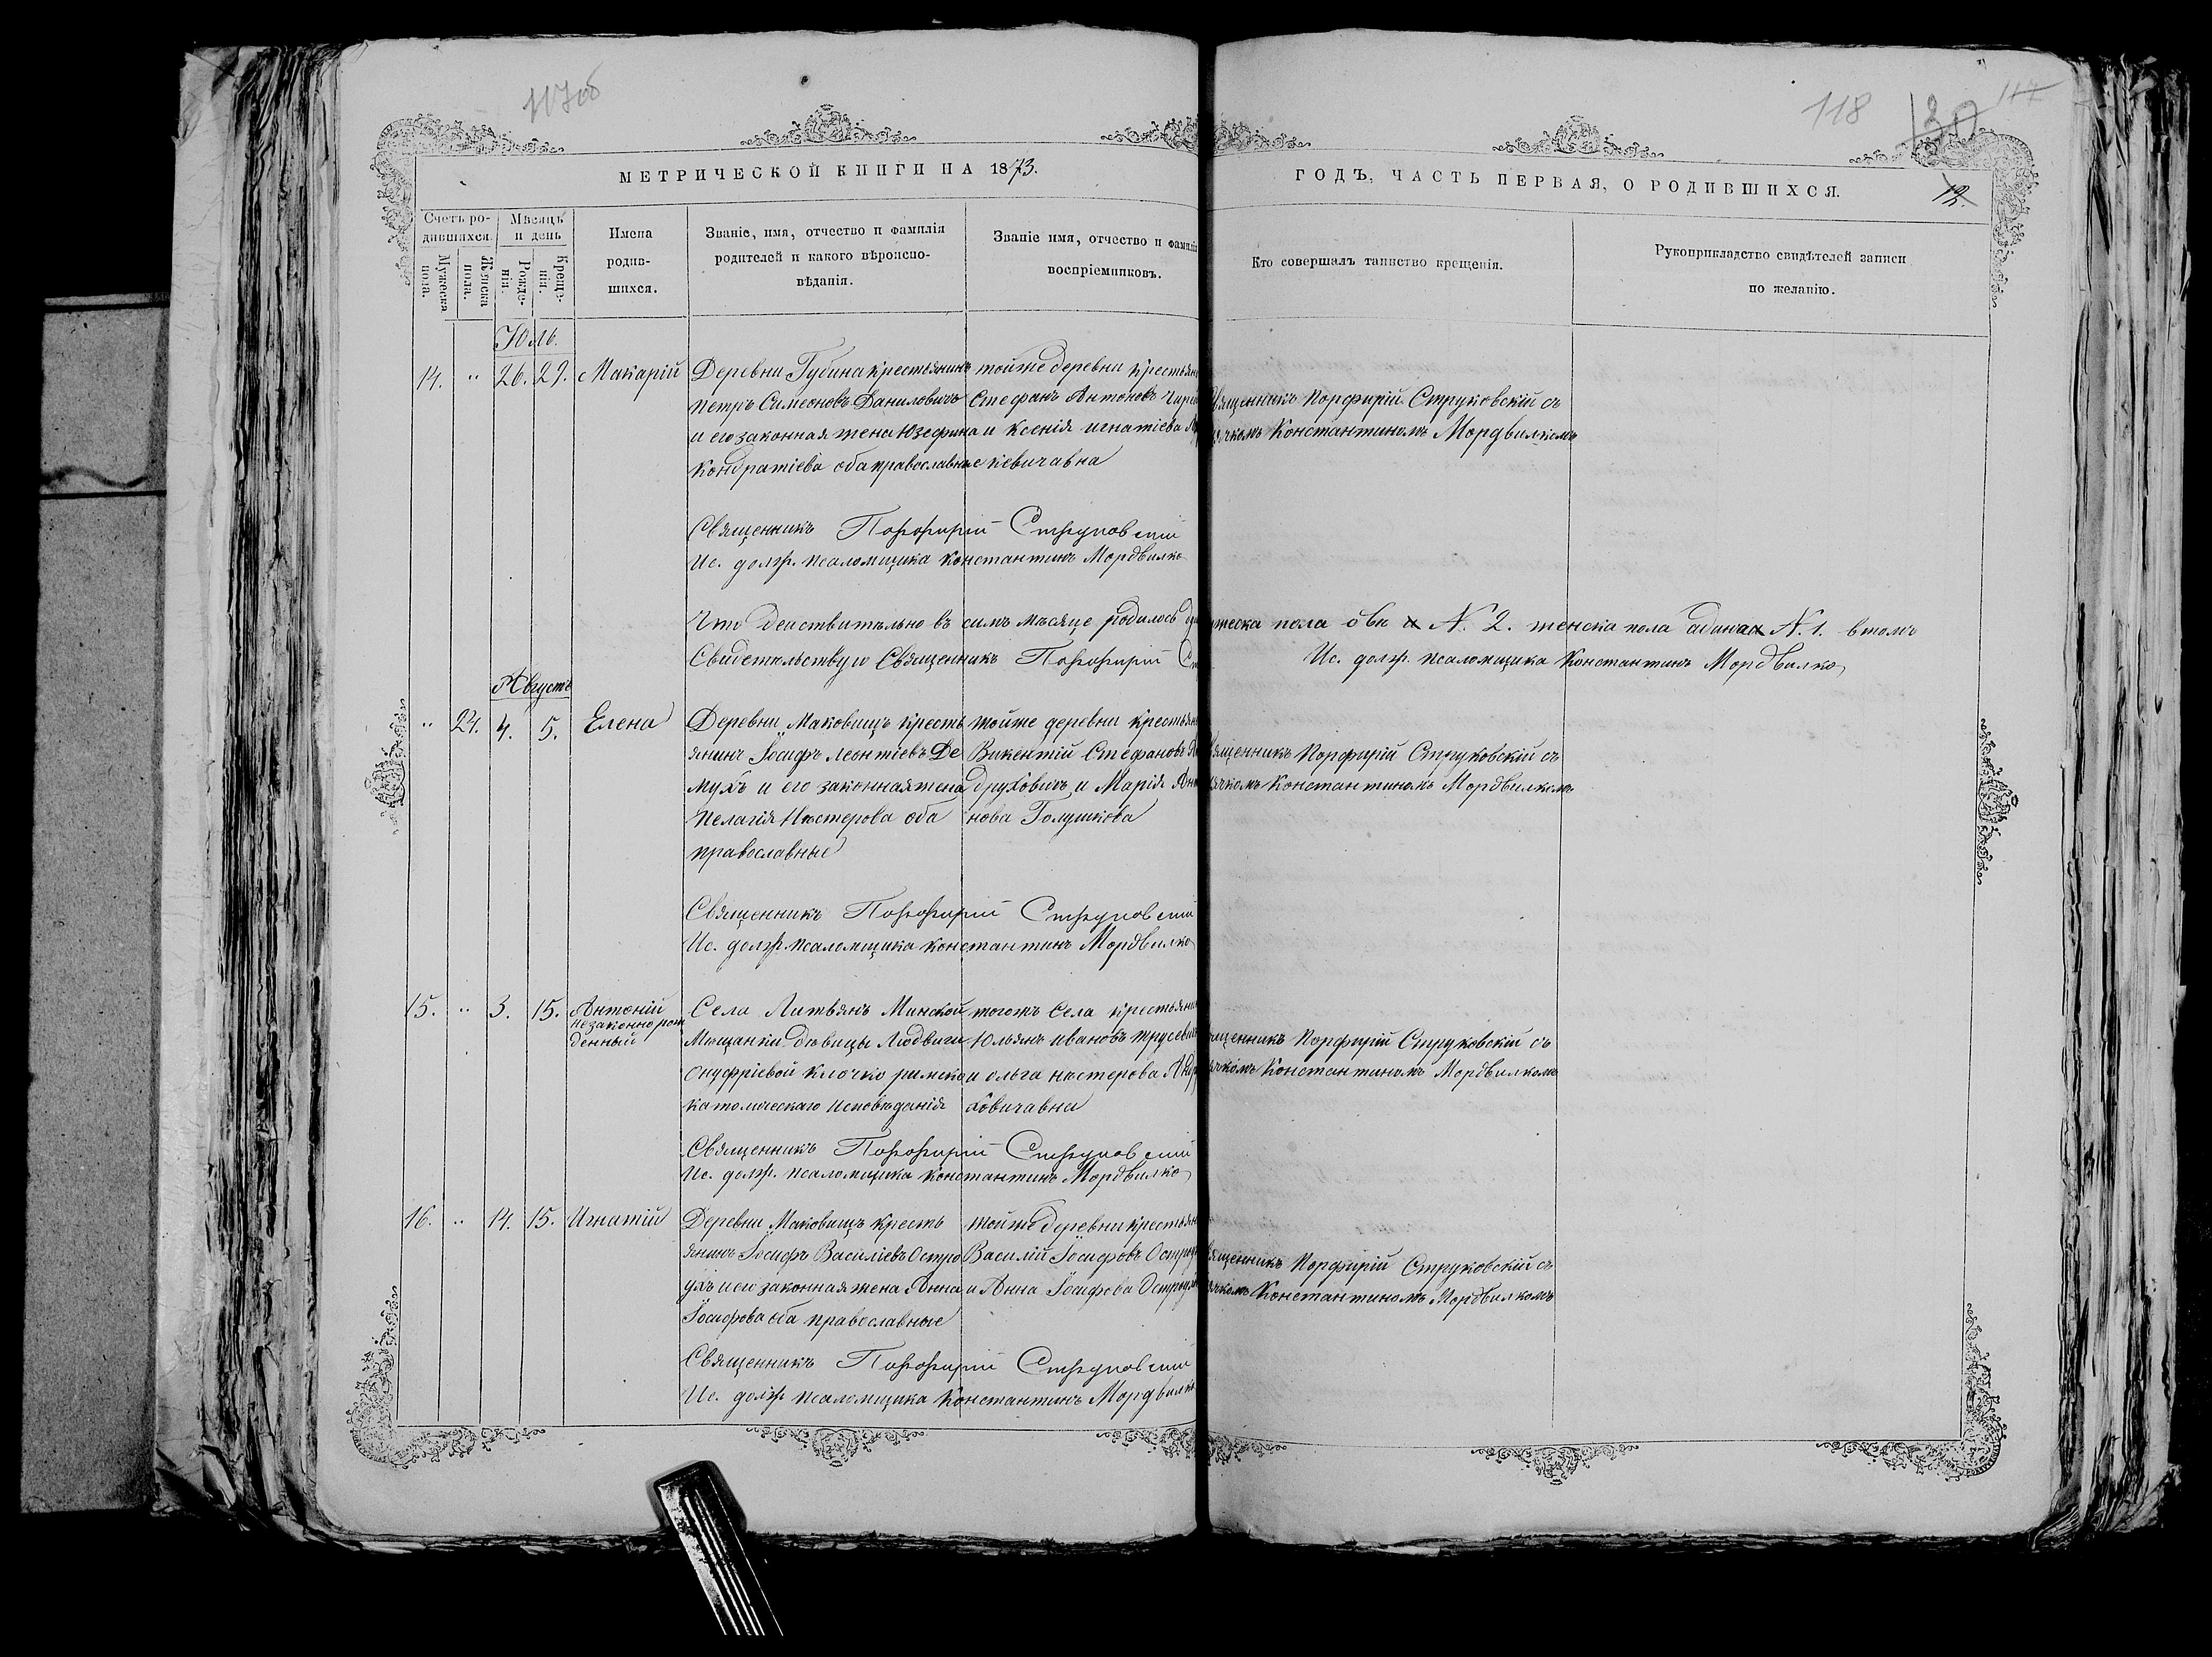 117об
118 130 117
МЕТРИЧЕСКОЙ КНИГИ НА 1873.
ГОДЪ, ЧАСТЬ ПЕРВАЯ, О РОДИВШИХСЯ.
12.
Счетъ ро-
дившихся.
Мѣсяцъ
и день
Мужеска
пола.
Женска
пола.
Рожде-
нія.
Креще-
нія.
Имена
родив-
шихся.
Званіе, имя, отчество и фамилія
родителей и какого вѣроиспо-
вѣданія.
Званіе имя, отчество и фамилія
воспріемниковъ.
Кто совершалъ таинство крещенія.
Рукоприкладство свидѣтелей записи
по желанію.
Юль.
14. " 26. 29. Макарій
Деревни Губина крестьянинъ
Петръ Симеоновъ Даниловичъ
и его законная жена Юзефина
Кондратіева оба православные
тойже деревни крестьян
Стефанъ Антоновъ
и Ксенія Игнатіева
кевичавна
Священникъ Порфирій Струковскій съ
Константиномъ Мордвилкомъ
Священникъ Порфирій Струковскій
Ис. долж. псаломщика Константинъ Мордвилко
Что действительно въ симъ мѣсяце родилось
жеска пола обк N. 2. женска пола N. 1. втомъ
Свидетельствую Священникъ Порфирій
Ис. долж. псаломщика Константинъ Мордвилко
Августъ
" 24. 4. 5. Елена
Деревни Маковищъ кресть
янинъ Іосифъ Леонтіевъ Де
мухъ и его законная жена
Пелагія Нестерова оба
православные
тойже деревни крестьян
Викентій Стефановъ
друховичъ и Марія Анто
нова Голушкова
Священникъ Порфирій Струковскій съ
Константиномъ Мордвилкомъ
Священникъ Порфирій Струковскій
Ис. долж. псаломщика Константинъ Мордвилко
15. " 3. 15. Антоній
незаконно рож
денный
Села Литвянъ Минской
Мещанки дѣвицы Людвиги
Онуфріевой Клочко римско
католическаго исповѣданія
тогожъ Села крестьяни
Юльянъ Ивановъ Трусевич
и Ольга Нестерова
ховичавна
Священникъ Порфирій Струковскій съ
Константиномъ Мордвилкомъ
Священникъ Порфирій Струковскій
Ис. долж. псаломщика Константинъ Мордвилко
16. " 14. 15. Игнатій
Деревни Маковищъ кресть
янинъ Іосифъ Василіевъ Остро
ухъ и его законная жена Анна
Іосифова оба православные
тойже деревни крестьян
Василій Іосифовъ Остроух
и Анна Іосифова Остроух
Священникъ Порфирій Струковскій съ
Константиномъ Мордвилкомъ
Священникъ Порфирій Струковскій
Ис. долж псаломщика Константинъ Мордвилко